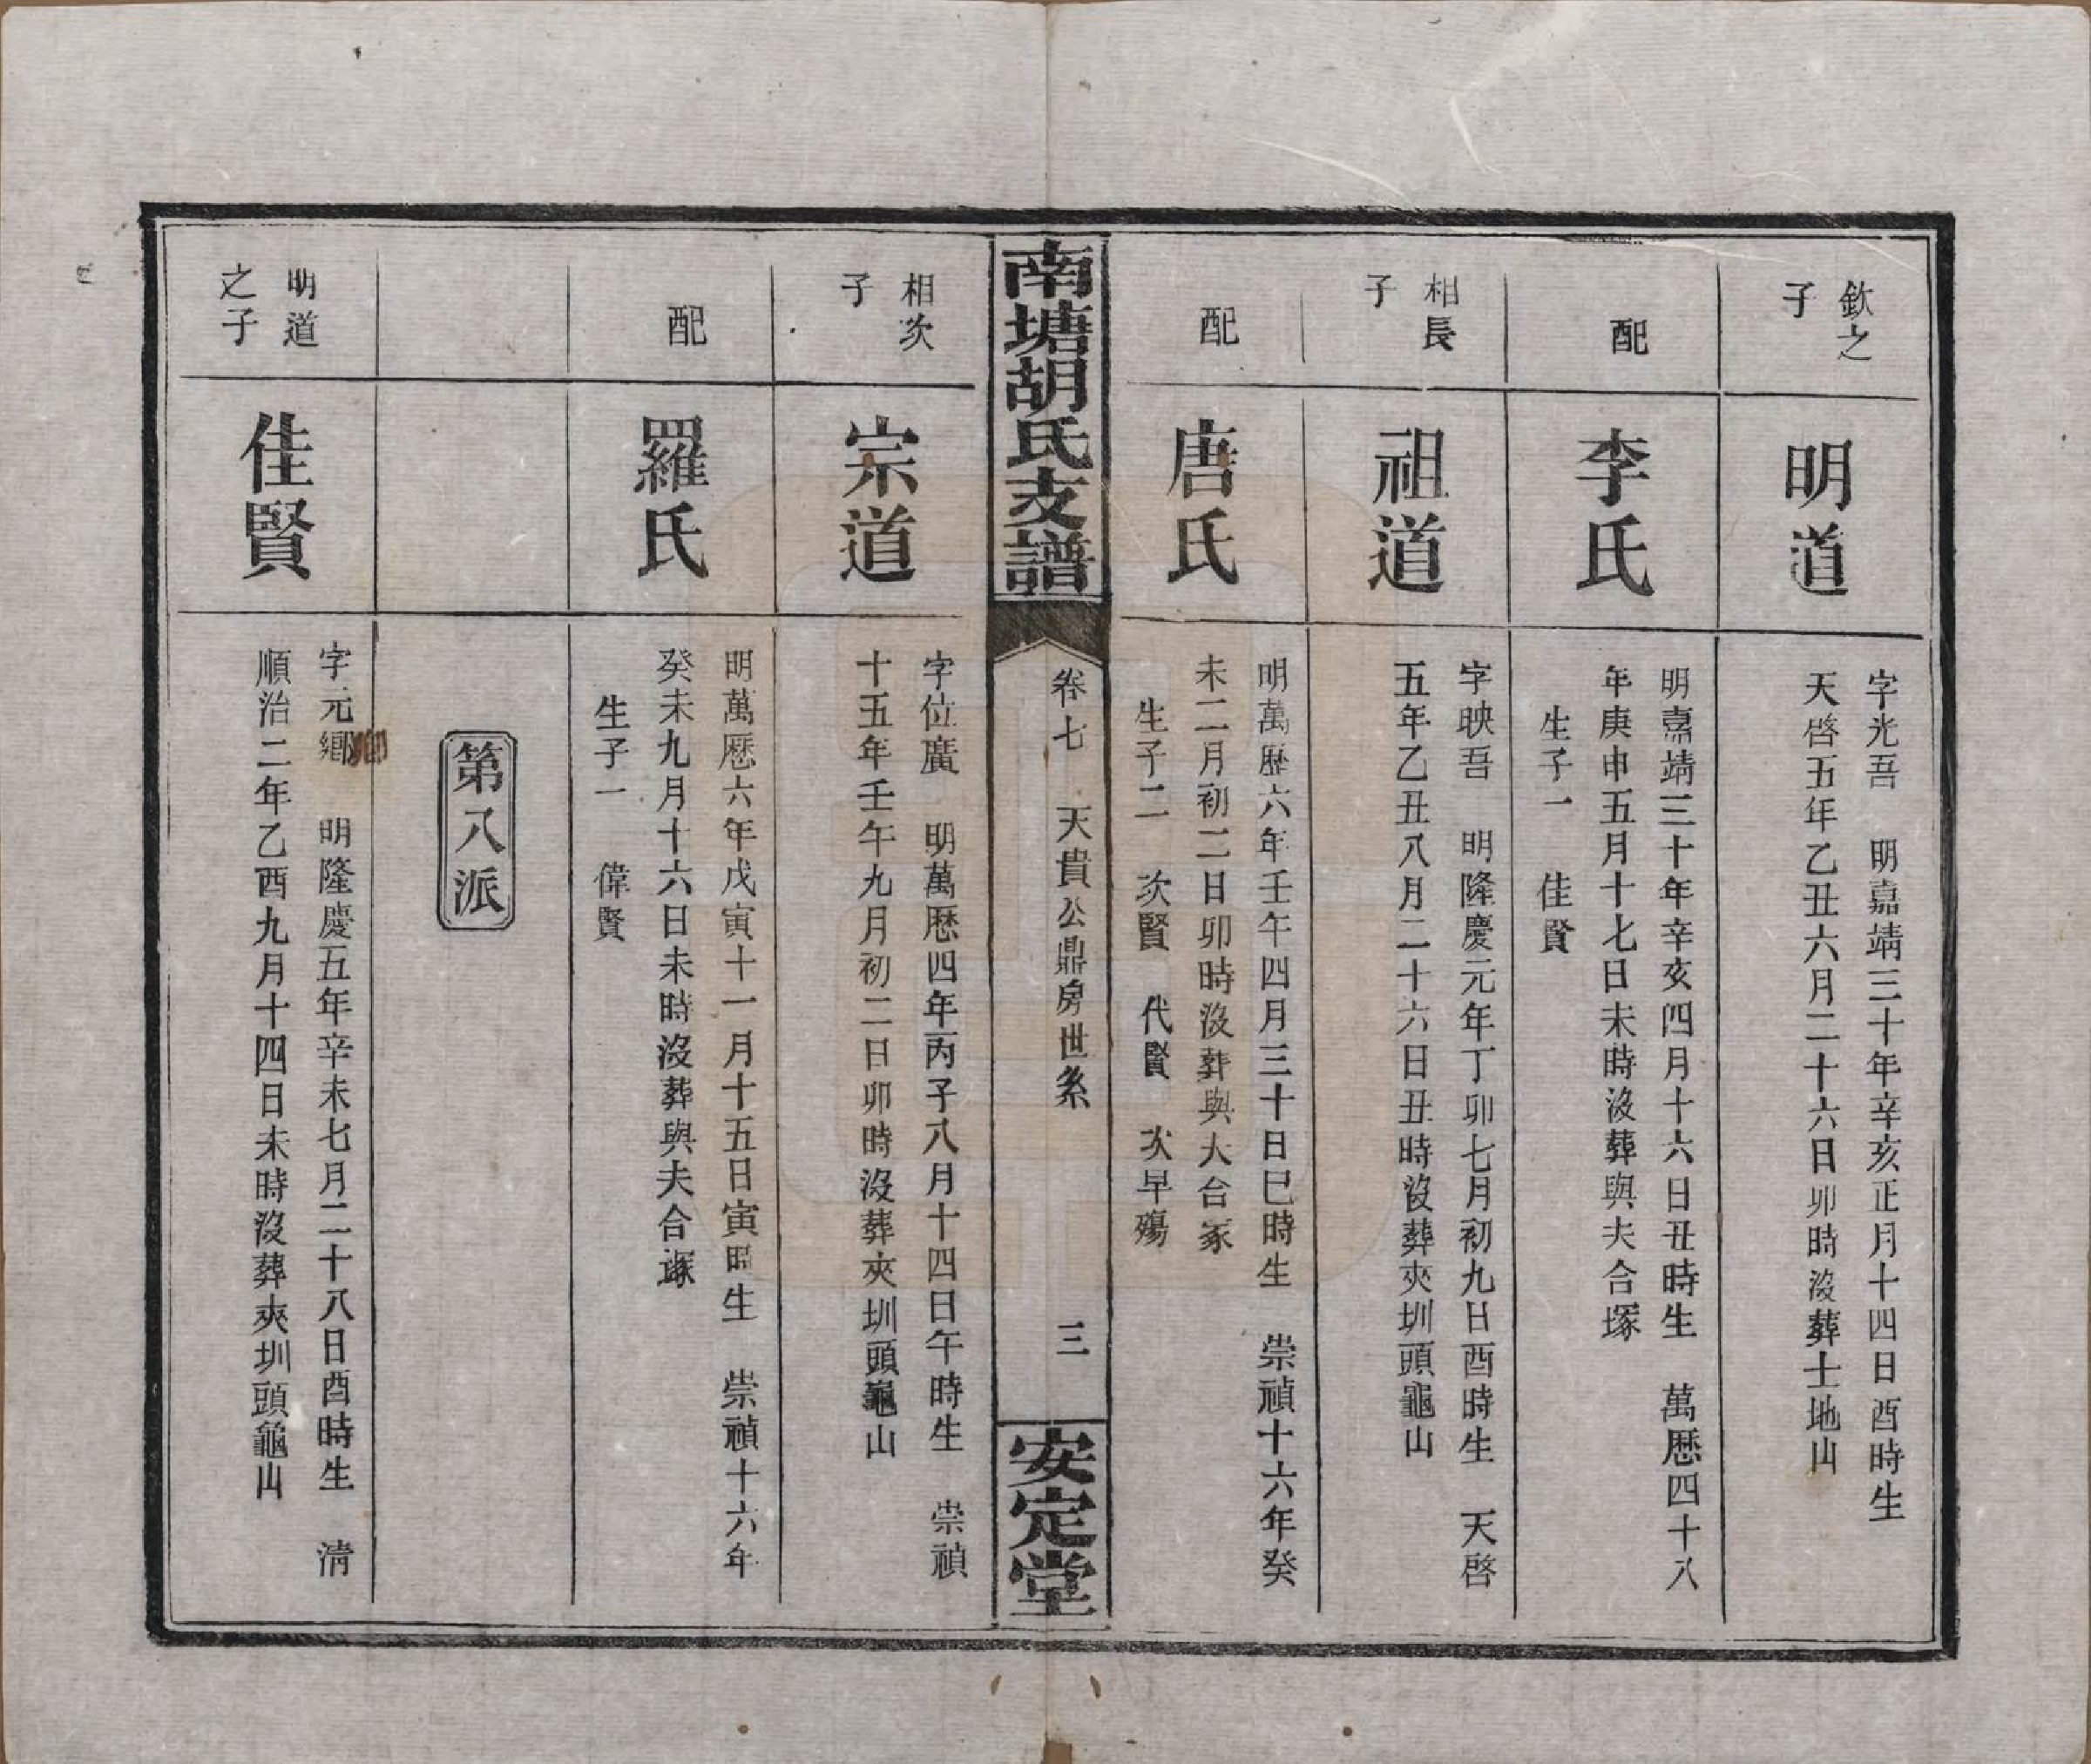 欽之
子
明道
字光吾　明嘉靖三十年辛亥正月十四日酉時生
天啓五年乙丑六月二十六日卯時沒葬土地山
配
李氏
明嘉靖三十年辛亥四月十六日丑時生　萬歷四十八
年庚申五月十七日未時沒葬與夫合塚
生子一　佳賢
相長
子
祖道
字映吾　明隆慶元年丁卯七月初九日酉時生　天啓
五年乙丑八月二十六日丑時沒葬夾圳頭龜山
配
唐氏
明萬歷六年壬午四月三十日巳時生　崇禎十六年癸
未二月初二日卯時沒葬與大合冢
生子二　次賢　代賢　次早殤
南塘胡氏支譜
卷七　天貴公鼎房世系　三
安定堂
相次
子
宗道
字位廣　明萬歷四年丙子八月十四日午時生　崇禎
十五年壬午九月初二日卯時沒葬夾圳頭龜山
配
羅氏
明萬歷六年戊寅十一月十五日寅時生　崇禎十六年
癸未九月十六日未時沒葬與夫合塚
生子一　偉賢
第八派
明道
之子
佳賢
字元鄉　明隆慶五年辛未七月二十八日酉時生　清
順治二年乙酉九月十四日未時沒葬夾圳頭龜山